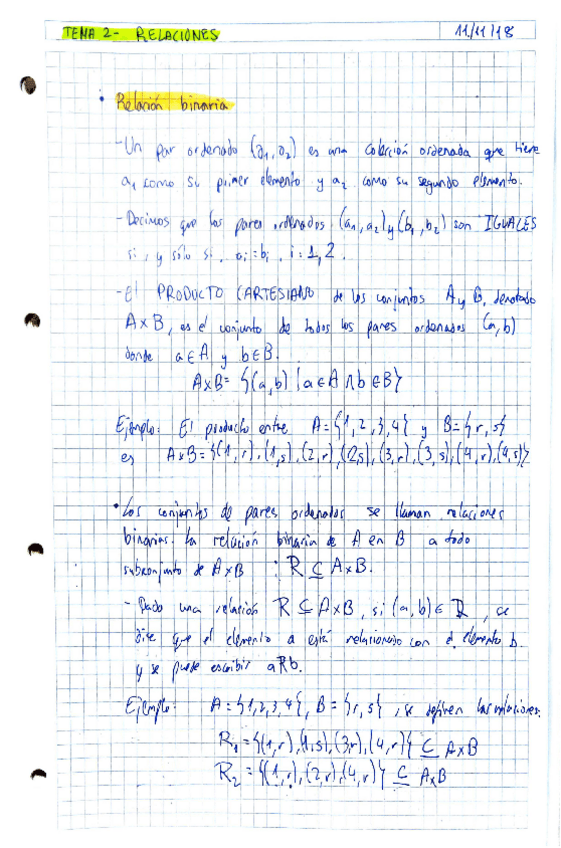 TEMA 2- RELACIONES 11/11/18
• Relación binaria
- Un par ordenado (a₁,a₂) es una colección ordenada que tiene
a₁ como su primer elemento y a₂ como su segundo elemento.
- Decimos que los pares ordenados (a₁,a₂) y (b₁,b₂) son IGUALES
si, y sólo si, aᵢ=bᵢ, i=1,2.
- El PRODUCTO CARTESIANO de los conjuntos A y B, denotado
A×B, es el conjunto de todos los pares ordenados (a,b)
donde a∈A y b∈B.
A×B= {(a,b) | a∈A ∧ b∈B}
Ejemplo: El producto entre A={1,2,3,4} y B={r,s}
es A×B={(1,r),(1,s),(2,r),(2,s),(3,r),(3,s),(4,r),(4,s)}
• Los conjuntos de pares ordenados se llaman relaciones
binarias. La relación binaria de A en B a todo
subconjunto de A×B : R⊆A×B.
- Dado una relación R⊆A×B, si (a,b)∈R, se
dice que el elemento a está relacionado con el elemento b
y se puede escribir aRb.
Ejemplo: A={1,2,3,4}, B={r,s}, se definen las relaciones:
R₁={(1,r),(1,s),(3,r),(4,r)} ⊆ A×B
R₂={(1,r),(2,r),(4,r)} ⊆ A×B